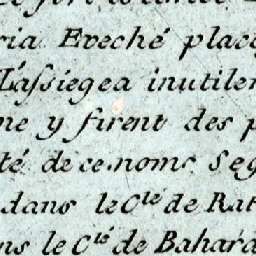 ria Eveché plac
l'assiegea inutile
ne y firent des p
té de ce nom. Seg
dans le C.té de Rat
ns le C.té de Bahar